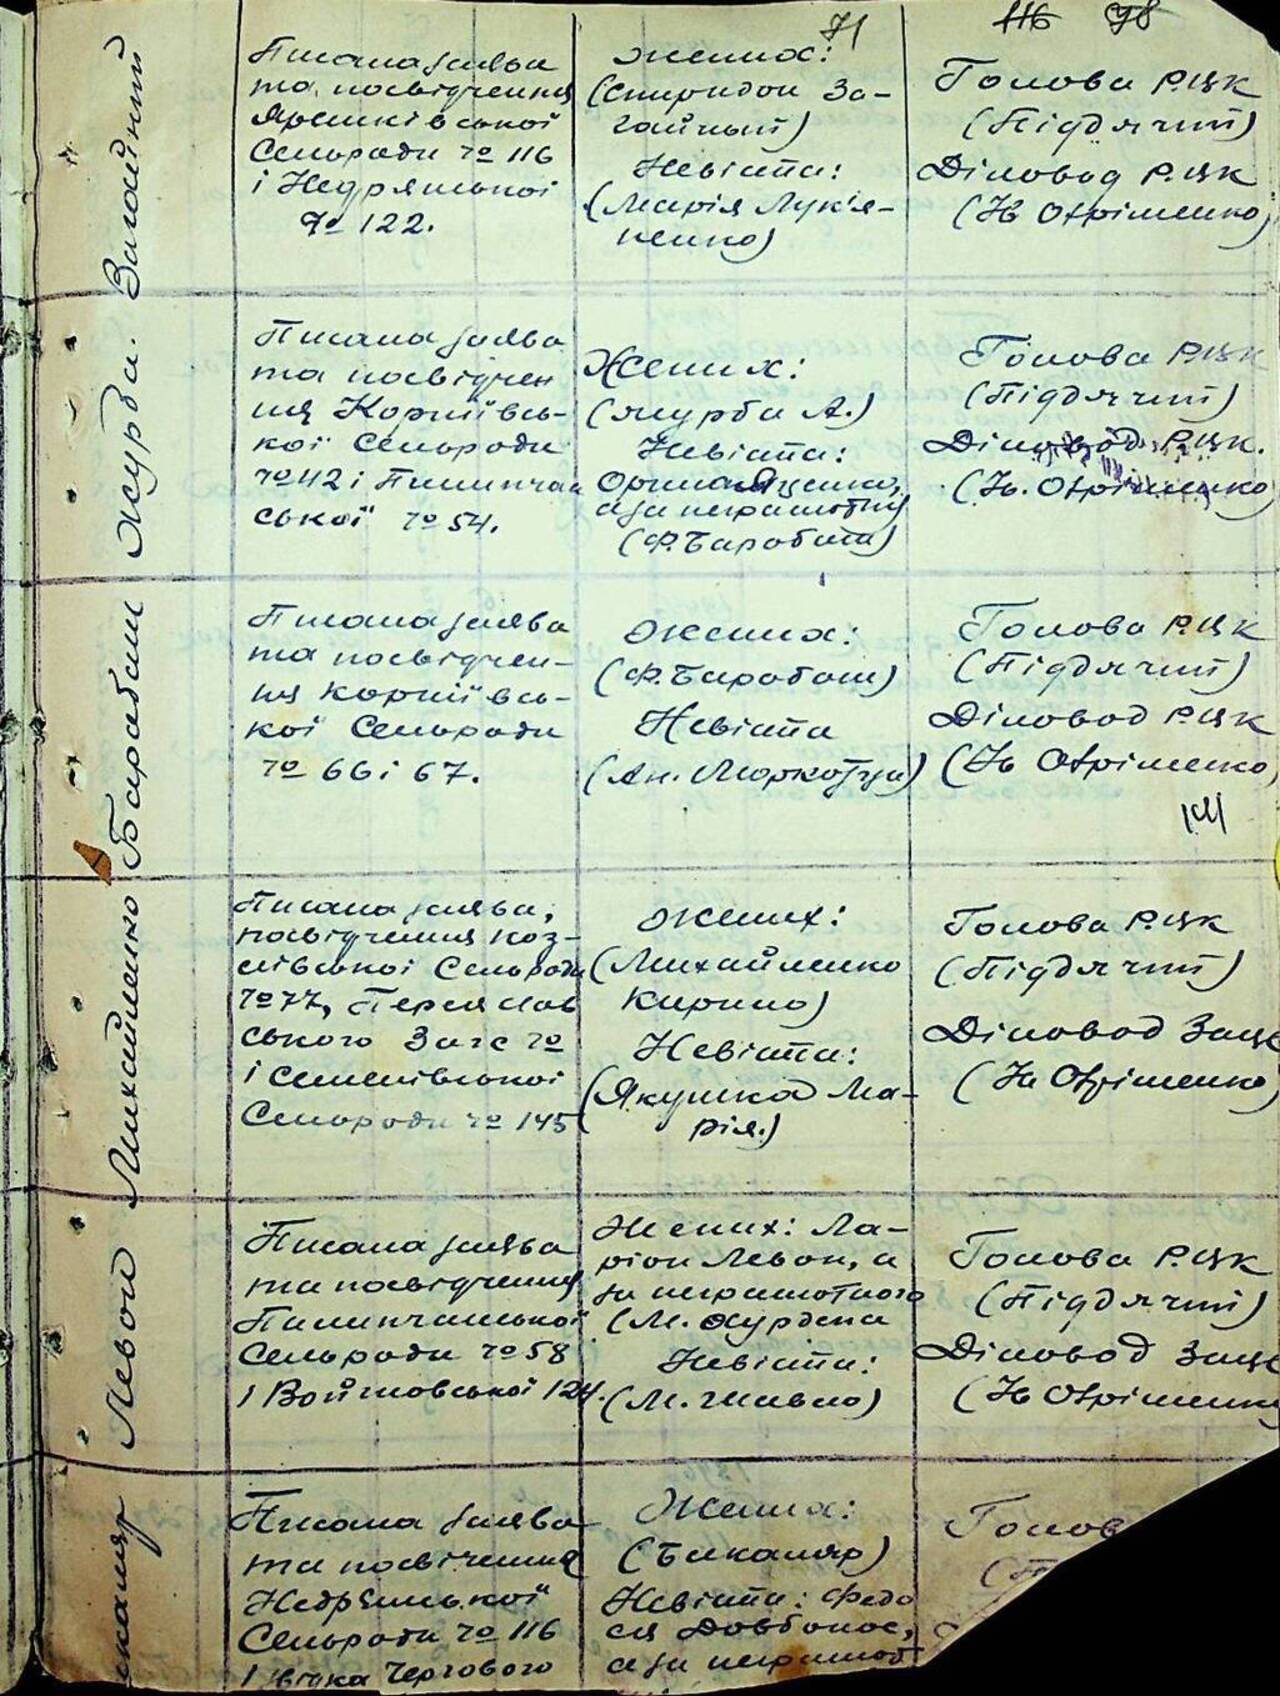 71
116 98
Загайний
Писана заява
та посвідчення
Яреськівської
Сельради № 116
і Недрянської
№ 122.
Жених:
(Спиридон За-
гайный)
Невіста:
(Марія Лук'я-
ненко)
Голова РЦК
(Підячий)
Діловод РЦК
(Ів Охріменко)
Журба.
Писана заява
та посвідчен
ня Корніївсь-
кої Сельради
№ 42 і Пилипчан
ської № 54.
Жених:
(Журба А.)
Невіста:
Орина Яценко,
а за неграмотну
(Ф. Барабаш)
Голова РЦК
(Підячий)
Діловод РЦК.
(Ів. Охріменко)
Барабаш
Писана заява
та посвідчен-
ня Корніївсь-
кої Сельради
№ 66 і 67.
Жених:
(Ф. Барабаш)
Невіста
Голова РЦК
(Підячий)
Діловод РЦК
(Ів Охріменко)
141
Михайленко
Писана заява,
посвідчення Коз-
лівської Сельради
№ 77, Переяслав
ського Загс №
і Семенівської
Сельради № 145
Жених:
(Михайленко
Кирило)
Невіста:
(Якушка Ма-
рія.)
Голова РЦК
(Підячий)
Діловод Загс
(Ів Охріменко)
Левон
Писана заява
та посвідчення
Пилипчанської
Сельради № 58
і Войтовської 124.
Жених: Ла-
ріон Левон, а
за неграмотного
(М. Журдена
Невіста:
(М. Шавло)
Голова РЦК
(Підячий)
Діловод Загс
(Ів Охріменко
Писана заява
та посвічення
Недрянської
Сельради № 116
і Чергового
Жених:
(Бикаляр)
Невіста: Федо
ся Довбонос,
а за неграмот
Голов